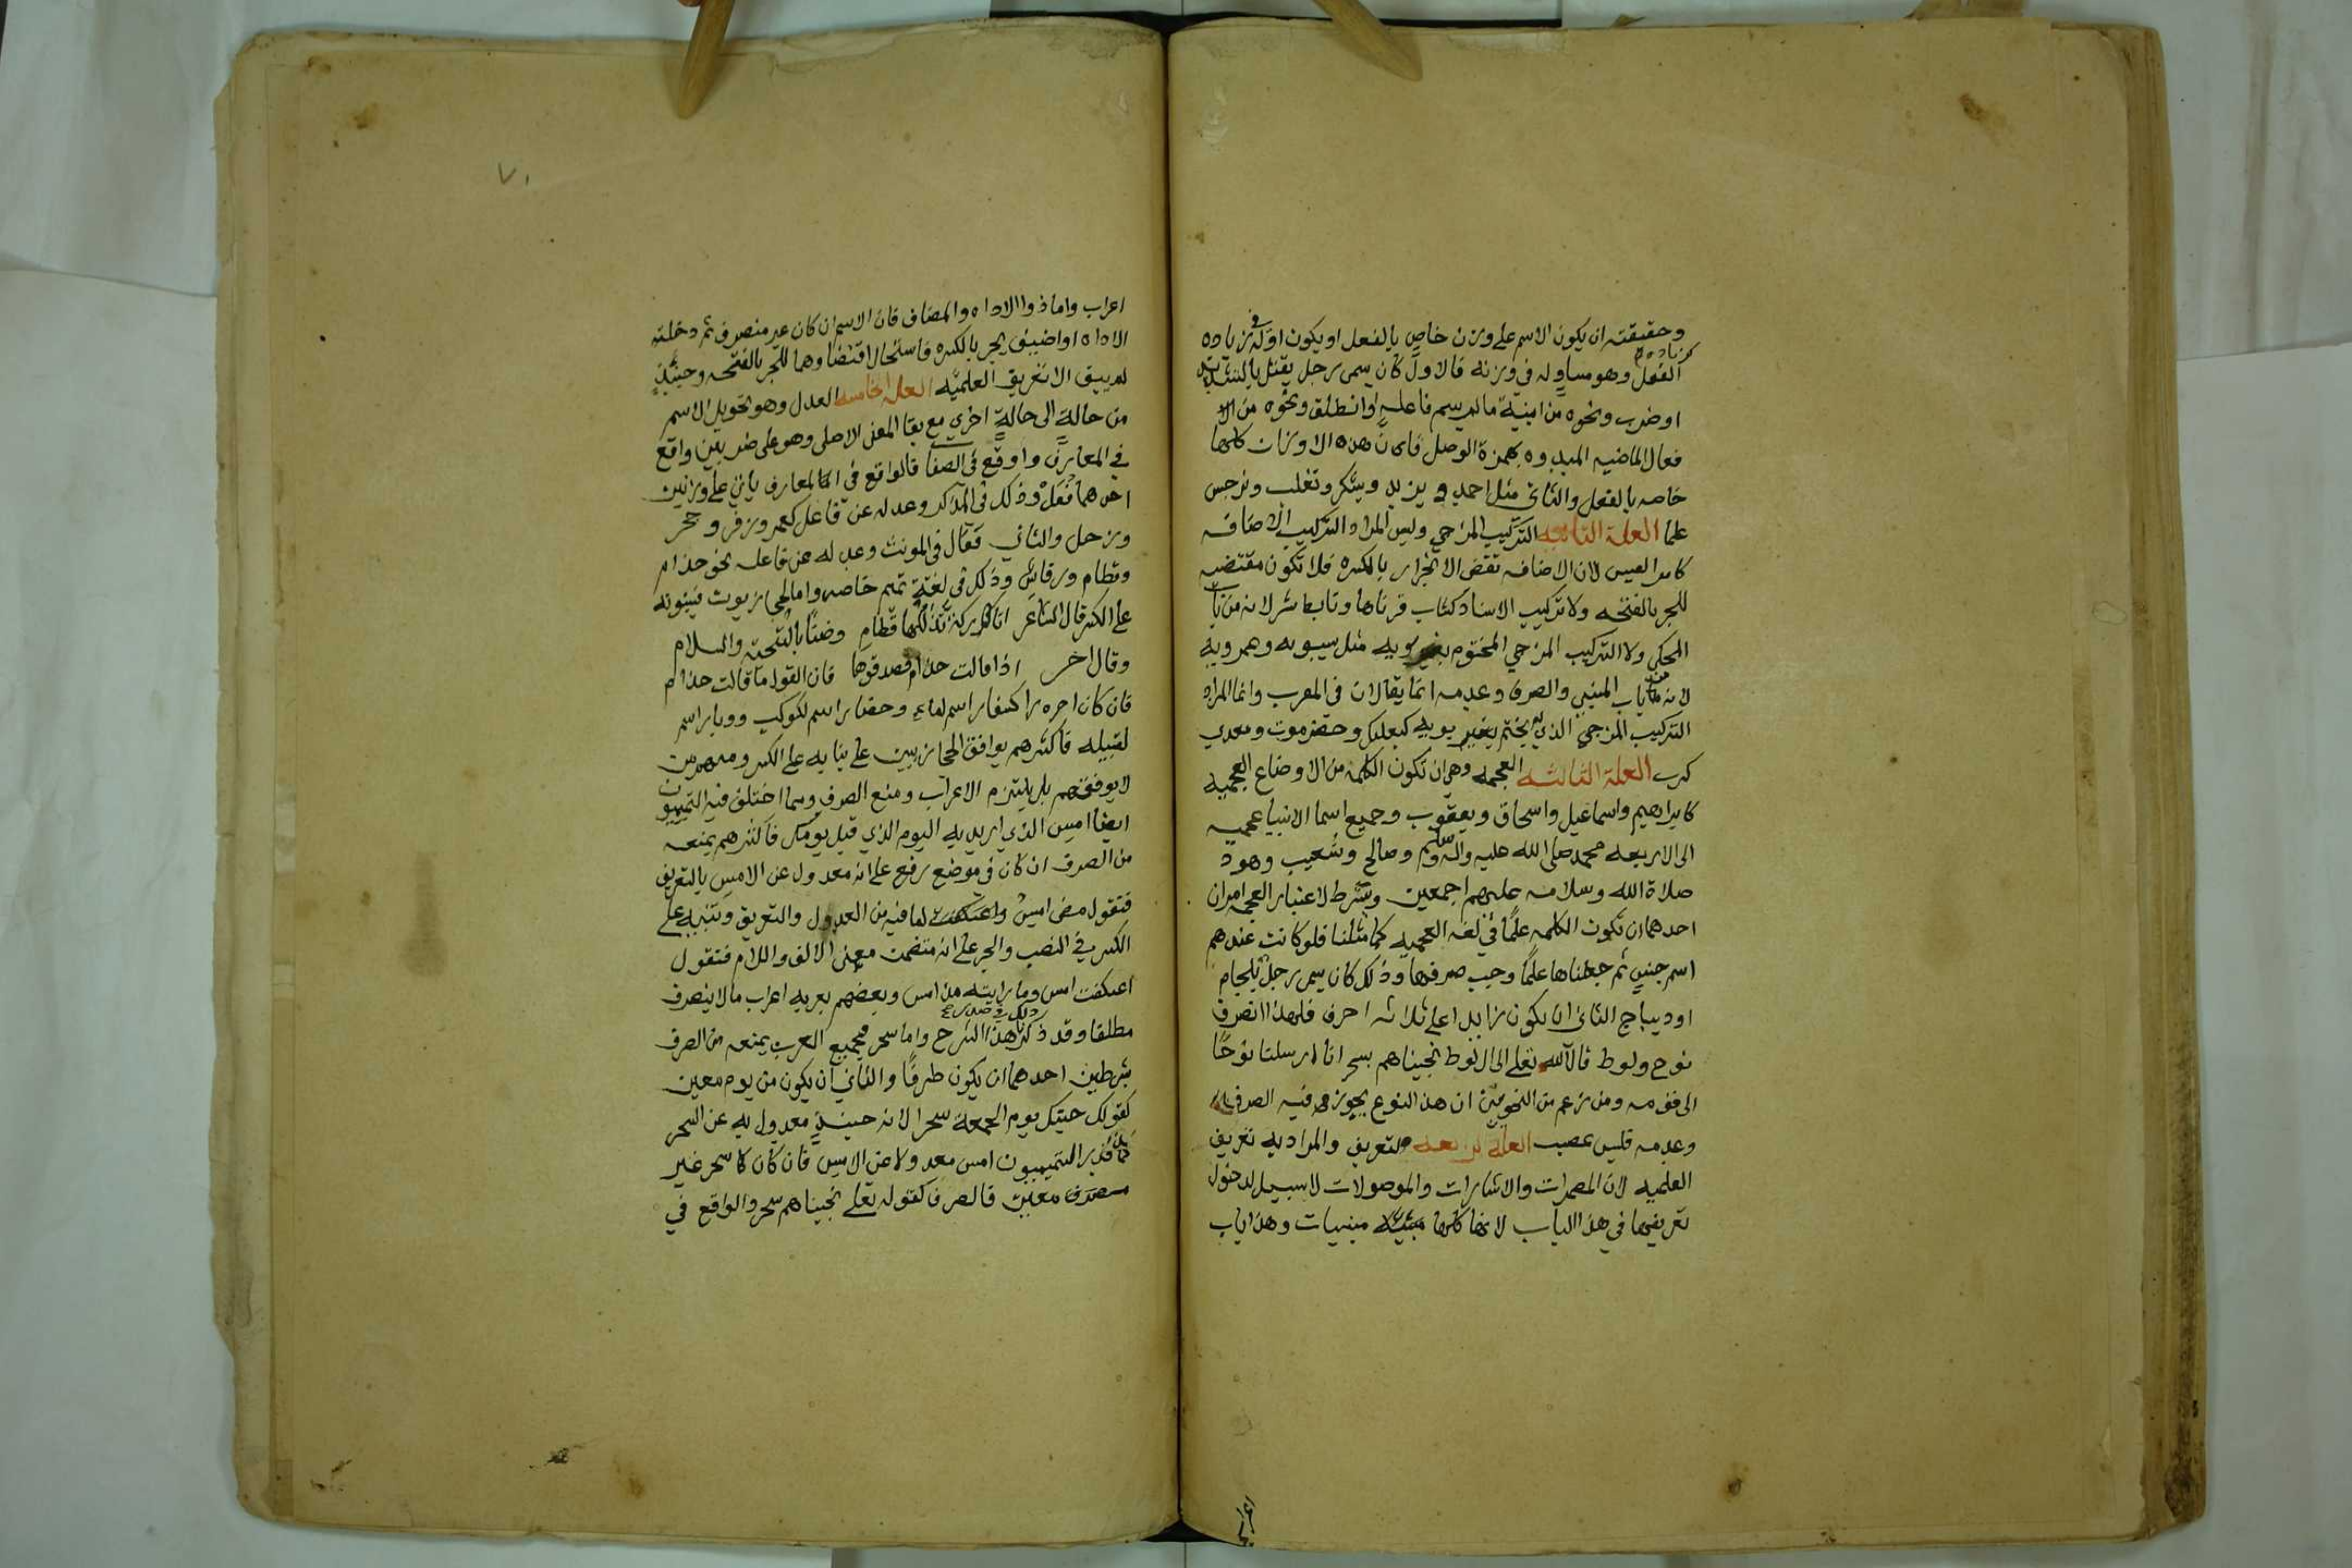 وحقيقته ان يكون الاسم على وزن خاص بالفعل او يكون في اوله زياده
كزياده
الفعل وهو مساو له في وزنه فالاول كان يسمى رجل بقتل بالتشديد
او ضرب ونحوه من ابنية ما لم يسم فاعله او انطلق ونحوه من الا
فعال الماضيه المبدوه بهمزة الوصل فان هذه الاوزان كلها
خاصه بالفعل والثاني مثل احمد ويزيد ويشكر وتغلب ونرجس
علما العلة الثانيه التركيب المزجي وليس المراد التركيب الاضافه
كامر القيس لان الاضافه تقتضي الانجرار بالكسره فلا تكون مقتضيه
للجر بالفتحه ولا تركيب الاسناد كشاب قرناها وتابط شرا لانه من باب
المحكي ولا التركيب المزجي المختوم بويه مثل سيبويه وعمرويه
لانه من باب المبني والصرف وعدمه انما يقالان في المعرب وانما المراد
التركيب المزجي الذي لم يختم بويه كبعلبك وحضرموت ومعدي
كرب العلة الثالثه العجمه وهي ان تكون الكلمه من الاوضاع العجميه
كابراهيم واسماعيل واسحاق ويعقوب وجميع اسما الانبيا عجميه
الى الاربعه محمد صلى الله عليه واله وسلم وصالح وشعيب وهود
صلاة الله وسلامه عليهم اجمعين وشرط لاعتبار العجمه امران
احدهما ان تكون الكلمه علما في لغة العجميه كما مثلنا فلو كانت عندهم
اسم جنس ثم جعلناها علما وجب صرفها وذلك كان يسمى رجل بلجام
او ديباج الثاني ان يكون زايدا على ثلاثه احرف فلهذا انصرف
نوح ولوط قال الله تعلى الى ال لوط نجيناهم بسحر انا ارسلنا نوحا
الى قومه ومن زعم من النحويين ان هذا النوع يجوز فيه الصرف
وعدمه فليس بمصيب العلة الرابعه التعريف والمراد به تعريف
العلميه لان المضمرات والاشارات والموصولات لا سبيل لدخول
تعريفها في هذا الباب لانها كلها مبنيات وهذا باب
اعراب
٧١
اعراب واما ذوا الاداه والمضاف فان الاسم ان كان غير منصرف ثم دخلته
الاداه او اضيف يجر بالكسره فاستحال اقتضاوهما للجر بالفتحه وحينئذ
لم يبق الا تعريف العلميه العلة الخامسه العدل وهو تحويل الاسم
من حالة الى حالة اخرى مع بقا المعنى الاصلي وهو على ضربين واقع
في المعارف وواقع في الصفا فالواقع في المعارف ياتي على وزنين
احدهما فعل وذلك في المذكر وعدله عن فاعل كعمر وزفر وجحر
وزحل والثاني فعال في المونث وعدله عن فاعله نحو حذام
وقطام ورقاش وذلك في لغة تميم خاصه واما الحجازيون فيبنونه
على الكسر قال الشاعر اتاركة تدللها قطام وضنا بالتحية والسلام
وقال اخر اذا قالت حذام فصدقوها فان القول ما قالت حذام
فان كان اخره را كسفار اسم لماء وحضار اسم لكوكب ووبار اسم
لقبيله فاكثرهم يوافق الحجازيين على بنايه على الكسر ومنهم من
لا يوفقهم بل يلتزم الاعراب ومنع الصرف ومما اختلف فيه التميميون
ايضا امس الذي اريد به اليوم الذي قبل يومك فاكثرهم يمنعه
من الصرف ان كان في موضع رفع على انه معدول عن الامس بالتعريف
فتقول مضى امس لما فيه من العدول والتعريف وتبنيه على
الكسر في النصب والجر على انه متضمن معنى الالف واللام فتقول
اعتكفت امس وما رايته مذ امس وبعضهم يعربه اعراب ما لا ينصرف
مطلقا وقد ذكرت ذلك في صدر هذا الشرح واما سحر فجميع العرب يمنعه من الصرف
بشرطين احدهما ان يكون ظرفا والثاني ان يكون من يوم معين
كقولك جيتك يوم الجمعة سحرا لانه حينيذ معدول به عن السحر
كما قدر التميميون امس معدولا عن الامس فان كان كا سحر غير
معين فالصرف كقوله تعلى نجيناهم بسحر والواقع في